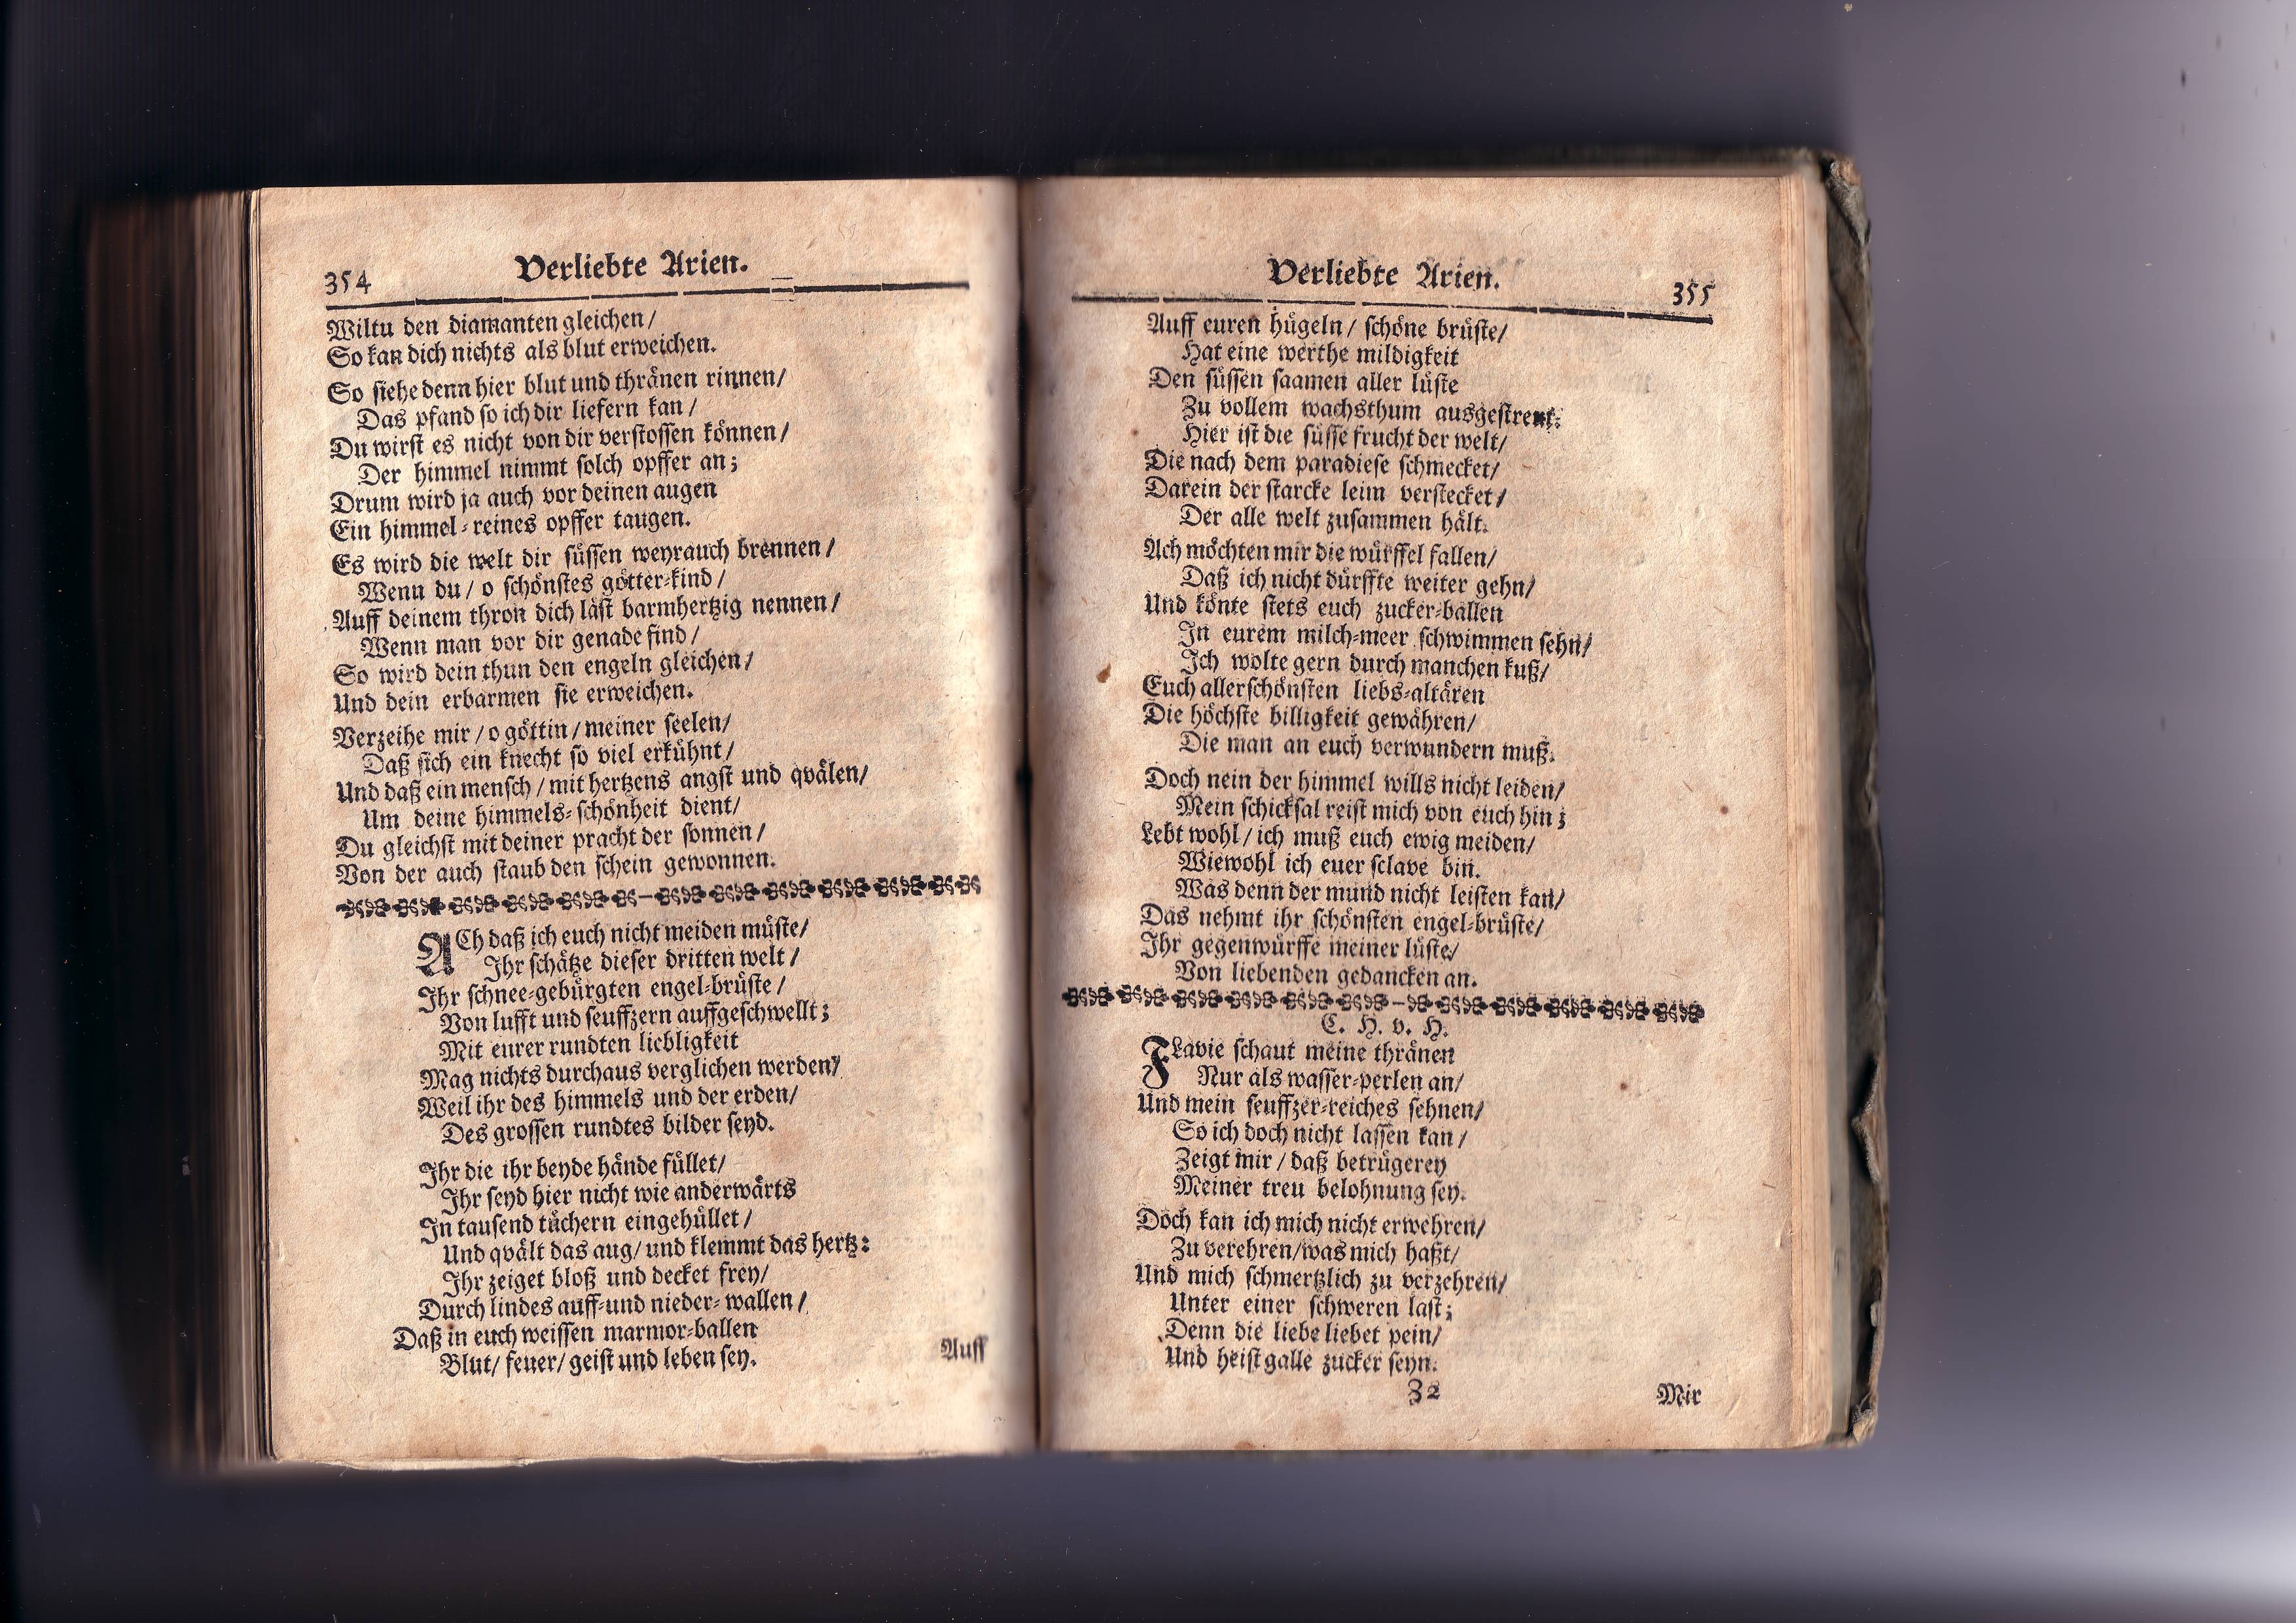 354
Verliebte Arien.
Wiltu den diamanten gleichen/
So kan dich nichts als blut erweichen.
So siehe denn hier blut und thränen rinnen/
Das pfand so ich dir liefern kan/
Du wirst es nicht von dir verstossen können/
Der himmel nimmt solch opffer an;
Drum wird ja auch vor deinen augen
Ein himmel-reines opffer taugen.
Es wird die welt dir süssen weyrauch brennen/
Wenn du/ o schönstes götter-kind/
Auff deinem thron dich läst barmhertzig nennen/
Wenn man vor dir genade find/
So wird dein thun den engeln gleichen/
Und dein erbarmen sie erweichen.
Verzeihe mir/ o göttin/ meiner seelen/
Daß sich ein knecht so viel erkühnt/
Und daß ein mensch/ mit hertzens angst und qvälen/
Um deine himmels-schönheit dient/
Du gleichst mit deiner pracht der sonnen/
Von der auch staub den schein gewonnen.
ACh daß ich euch nicht meiden müste/
Ihr schätze dieser dritten welt/
Ihr schnee-gebürgten engel-brüste/
Von lufft und seuffzern auffgeschwellt;
Mit eurer rundten liebligkeit
Mag nichts durchaus verglichen werden/
Weil ihr des himmels und der erden/
Des grossen rundtes bilder seyd.
Ihr die ihr beyde hände füllet/
Ihr seyd hier nicht wie anderwärts
In tausend tüchern eingehüllet/
Und qvält das aug/ und klemmt das hertz:
Ihr zeiget bloß und decket frey/
Durch lindes auff-und nieder-wallen/
Daß in euch weissen marmor-ballen
Blut/ feuer/ geist und leben sey.
Auff
Verliebte Arien.
355
Auff euren hügeln/ schöne brüste/
Hat eine werthe mildigkeit
Den süssen saamen aller lüste
Zu vollem wachsthum ausgestreut:
Hier ist die süsse frucht der welt/
Die nach dem paradiese schmecket/
Darein der starcke leim verstecket/
Der alle welt zusammen hält.
Ach möchten mir die würffel fallen/
Daß ich nicht dürffte weiter gehn/
Und könte stets euch zucker-ballen
In eurem milch-meer schwimmen sehn/
Ich wolte gern durch manchen kuß/
Euch allerschönsten liebs-altären
Die höchste billigkeit gewähren/
Die man an euch verwundern muß.
Doch nein der himmel wills nicht leiden/
Mein schicksal reist mich von euch hin;
Lebt wohl/ ich muß euch ewig meiden/
Wiewohl ich euer sclave bin.
Was denn der mund nicht leisten kan/
Das nehmt ihr schönsten engel-brüste/
Ihr gegenwürffe meiner lüste/
Von liebenden gedancken an.
C. H. v. H.
FLavie schaut meine thränen
Nur als wasser-perlen an/
Und mein seuffzer-reiches sehnen/
So ich doch nicht lassen kan/
Zeigt mir/ daß betrügerey
Meiner treu belohnung sey.
Doch kan ich mich nicht erwehren/
Zu verehren/ was mich haßt/
Und mich schmertzlich zu verzehren/
Unter einer schweren last;
Denn die liebe liebet pein/
Und heist galle zucker seyn.
Z 2
Mir